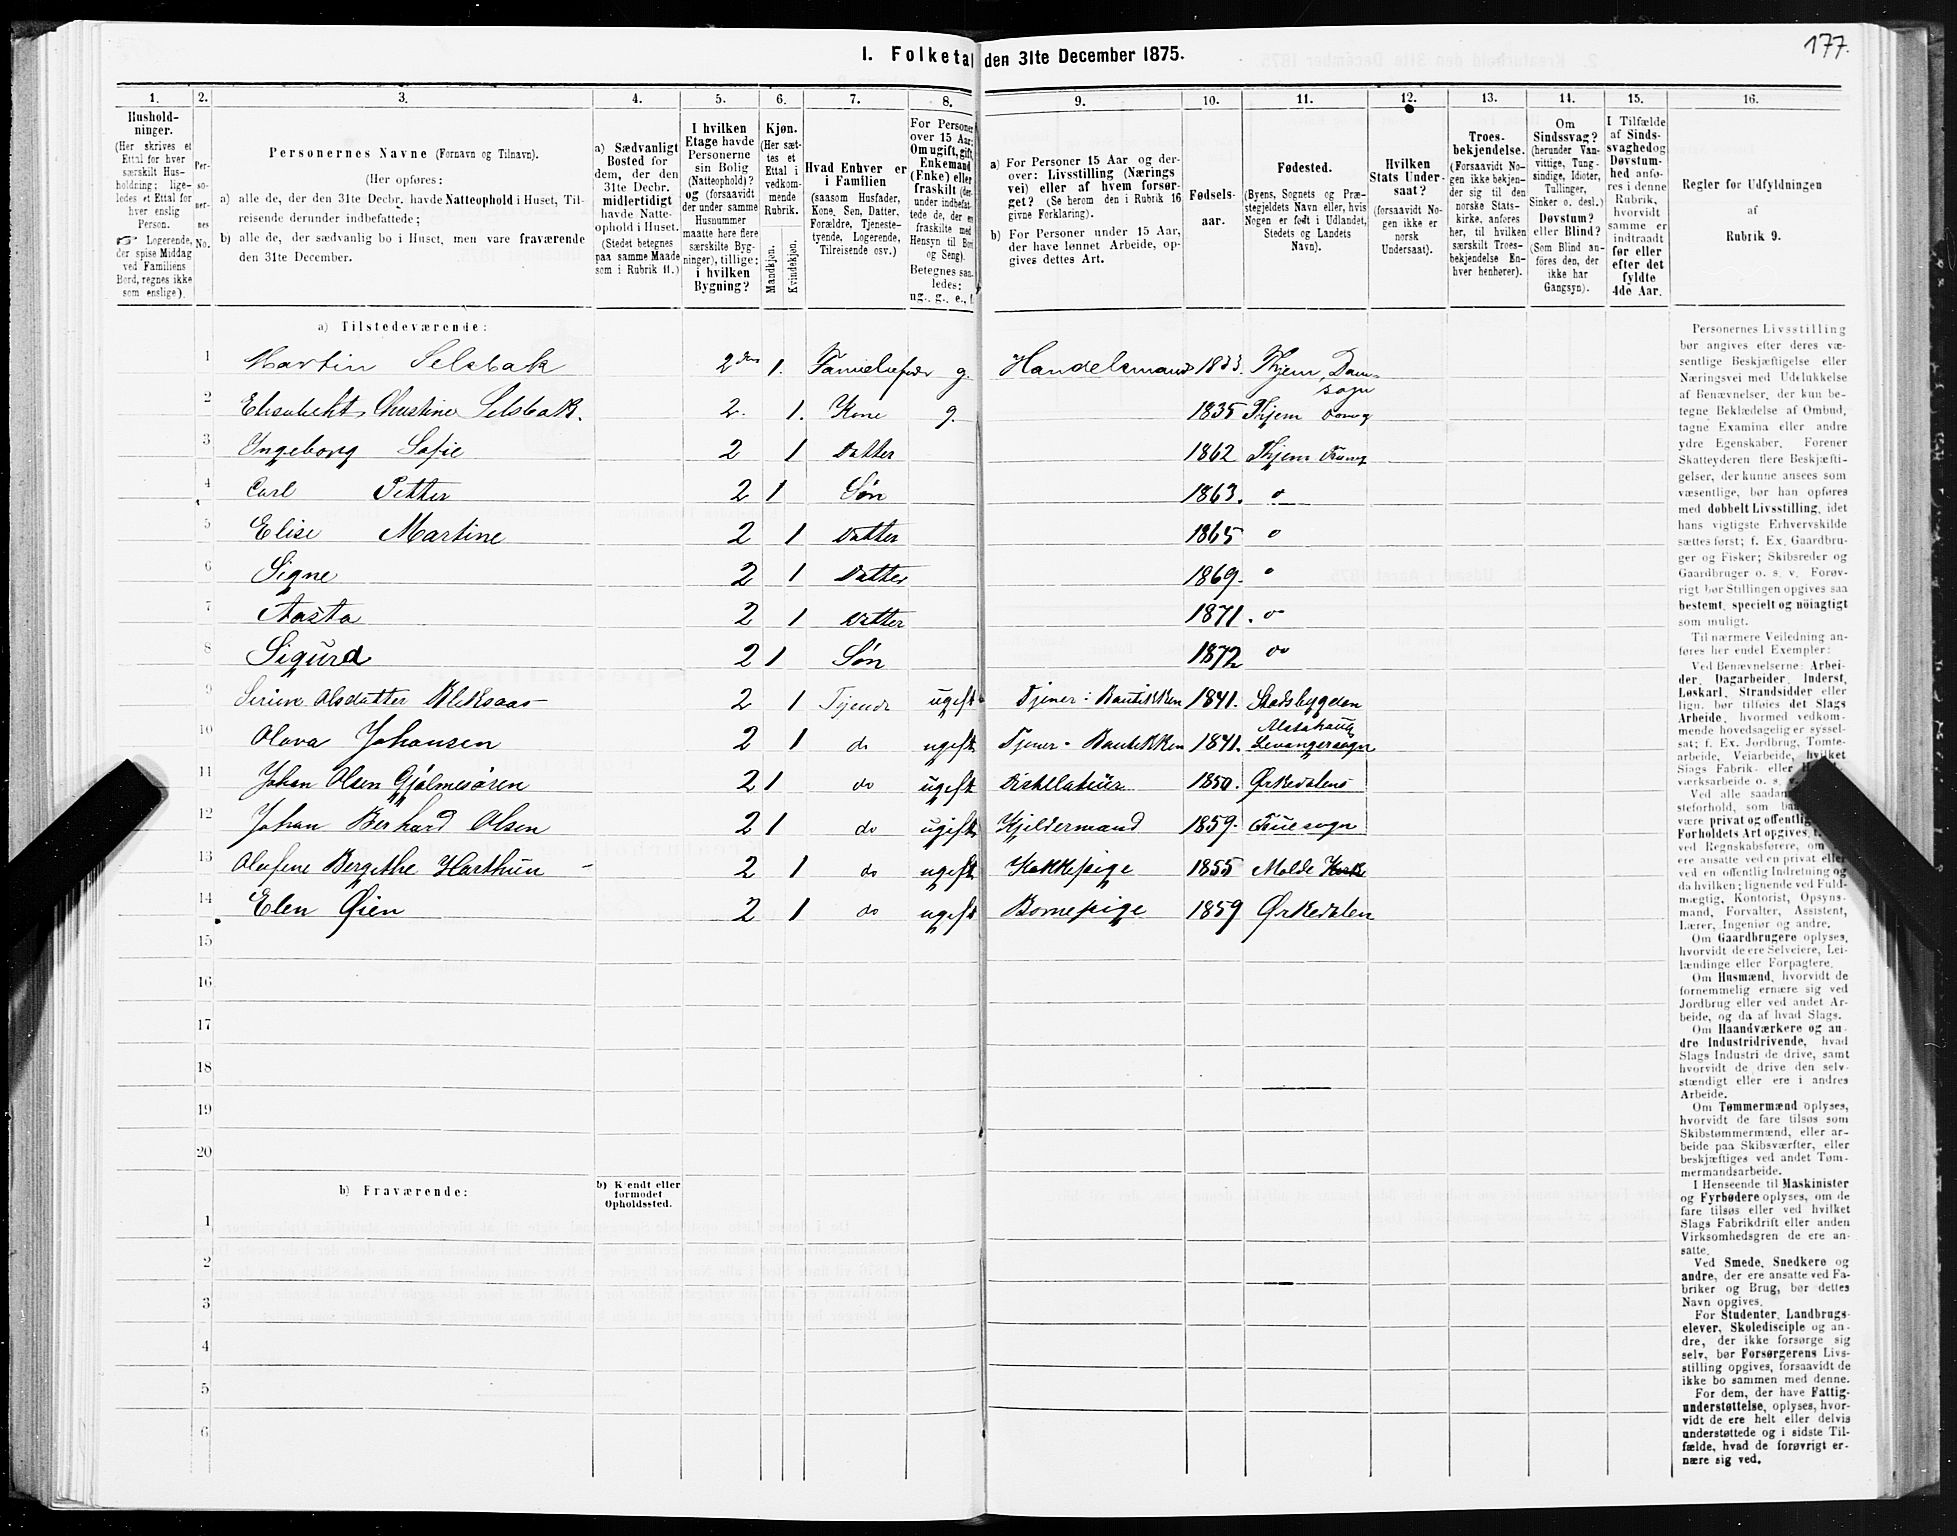 177.
I. Folketal den 31te December 1875.
1. 2. 3. 4. 5. 6. 7. 8. 9. 10. 11. 12. 13. 14. 15. 16.
Hushold-
ninger.
(Her skrives et
Ettal for hver
særskilt Hus-
holdning; lige-
ledes et Ettal for
hver enslig
Person.
☞ Logerende,
der spise Middag
ved Familiens
Bord, regnes ikke
som enslige).
Per-
so-
ner-
nes
No.
Personernes Navne (Fornavn og Tilnavn).
(Her opføres:
a) alle de, der den 31te Decbr. havde Natteophold i Huset, Til-
reisende derunder indbefattede;
b) alle de, der sædvanlig bo i Huset, men vare fraværende
den 31te December.
a) Sædvanligt
Bosted for
dem, der den
31te Decbr.
midlertidigt
havde Natte-
ophold i Huset.
(Stedet betegnes
paa samme Maade
som i Rubrik 11.)
I hvilken
Etage havde
Personerne
sin Bolig
(Natteophold)?
og (forsaavidt
der under samme
Husnummer
maatte høre flere
særskilte Byg-
ninger), tillige:
i hvilken
Bygning?
Kjøn.
(Her sæt-
tes et
Ettal i
vedkom-
mende
Rubrik.
Mandkjøn.
Kvindekjøn.
Hvad Enhver er
i Familien
(saasom Husfader,
Kone, Søn, Datter,
Forældre, Tjeneste-
tyende, Logerende,
Tilreisende osv.)
For Personer
over 15 Aar:
Om ugift, gift,
Enkemand
(Enke) eller
fraskilt (der-
under indbefat-
tede de, der er
fraskilte med
Hensyn til Bord
og Seng).
Betegnes saa-
ledes:
ug., g., e., f.
a) For Personer 15 Aar og der-
over: Livsstilling (Nærings
vei) eller af hvem forsør-
get? (Se herom den i Rubrik 16
givne Forklaring).
b) For Personer under 15 Aar,
der have lønnet Arbeide, op-
gives dettes Art.
Fødsels-
aar.
Fødested.
(Byens, Sognets og Præ-
stegjeldets Navn eller, hvis
Nogen er født i Udlandet,
Stedets og Landets
Navn).
Hvilken
Stats Under-
saat?
(forsaavidt No-
gen ikke er
norsk
Undersaat).
Troes-
bekjendelse.
(Forsaavidt No-
gen ikke bekjen-
der sig til den
norske Stats-
kirke, anføres
her, til hvilken
særskilt Troes-
bekjendelse En-
hver henhører).
Om
Sindssvag?
(herunder Van-
vittige, Tung-
sindige, Idioter,
Tullinger,
Sinker o. desl.)
Døvstum?
eller Blind?
(Som Blind an-
føres den, der
ikke har
Gangsyn).
I Tilfælde
af Sinds-
svaghed og
Døvstum-
hed anfø-
res i denne
Rubrik,
hvorvidt
samme er
indtraadt
før eller
efter det
fyldte
4de Aar.
Regler for Udfyldningen
af
Rubrik 9.
a) Tilstedeværende:
1 Martin Selsbak 2den 1. Familiefader g. Handelsmand 1833. Thjem, Dom-
sogn
2 Elisabeht Christine Selsbak. 2. 1. Kone g. 1835 Thjem
3 Ingeborg Sofie 2 1 Datter 1862 Thjem
4 Carl Petter 2 1 Søn 1863.
5 Elise Martine 2 1 Datter 1865
6 Signe 2 1 Datter 1869.
7 Aasta 2 1 Datter 1871.
8 Sigurd 2 1 Søn 1872
9 Olsdatter 2 1 Tjende ugift Tjener i Boutikken 1841. Stadsbygden
10 Olava Johansen 2 1 do ugift Tjener i Boutikken 1841. Alstahaug
Levangersogn
11 Johan Olsen Gjølmesøren 2 1 do ugift Distillatuur 1850. Ørkedalens
12 Johan Berhard Olsen 2 1 do ugift Kjeldermand 1859.
13 Olufine Bergithe 2 1 do ugift Kokkepige 1855 Molde
14 Elen Øien 2 1 do ugift Bornepige 1859 Ørkedalen
15
16
17
18
19
20
b) Fraværende:
b) Kjendt eller
formodet
Opholdssted.
1
2
3
4
5
6
Personernes Livsstilling
bør angives efter deres væ-
sentlige Beskjæftigelse eller
Næringsvei med Udelukkelse
af Benævnelser, der kun be-
tegne Beklædelse af Ombud,
tagne Examina eller andre
ydre Egenskaber. Forener
Skatteyderen flere Beskjæfti-
gelser, der kunne ansees som
væsentlige, bør han opføres
med dobbelt Livsstilling, idet
hans vigtigste Erhvervskilde
sættes først; f. Ex. Gaardbru-
ger og Fisker; Skibsreder og
Gaardbruger o. s. v. Forøv-
rigt bør Stillingen opgives saa
bestemt, specielt og nöiagtigt
som muligt.
Til nærmere Veiledning an-
føres her endel Exempler:
Ved Benævnelserne: Arbei-
der, Dagarbeider, Inderst,
Løskarl, Strandsidder eller
lign. bør tilføies det Slags
Arbeide, hvormed vedkom-
mende hovedsagelig er syssel-
sat; f. Ex. Jordbrug, Tomte-
arbeide, Veiarbeide, hvilket
Slags Fabrik- eller
værksarbeide o. s.
Ved alle saadan
steforhold, som
være privat og offentlig
Forholdets Art opgives,
ved Regnskabsførere, om
ere ansatte ved en privat eller
ved en offentlig Indretning og
da hvilken; lignende ved Fuld-
mægtig, Kontorist, Opsyns-
mand, Forvalter, Assistent,
Lærer, Ingeniør og andre.
Om Gaardbrugere oplyses,
hvorvidt de ere Selveiere, Lei-
lændinge eller Forpagtere.
Om Husmænd, hvorvidt de
fornemmelig ernære sig ved
Jordbrug eller ved andet Ar-
beide, og da af hvad Slags.
Om Haandværkere og an-
dre Industridrivende, hvad
Slags Industri de drive, samt
hvorvidt de drive den selv-
stændigt eller ere i andres
Arbeide.
Om Tømmermænd oplyses,
hvorvidt de fare tilsøs som
Skibstømmermænd, eller ar-
beide paa Skibsværfter, eller
beskjæftiges ved andet Tøm-
mermandsarbeide.
I Henseende til Maskinister
og Fyrbødere oplyses, om de
fare tilsøs eller ved hvilket
Slags Fabrikdrift eller anden
Virksomhedsgren de ere an-
satte.
Ved Smede, Snedkere og
andre, der ere ansatte ved Fa-
briker og Brug, bør dettes
Navn opgives.
For Studenter, Landbrugs-
elever, Skoledisciple og an-
dre, der ikke forsørge sig
selv, bør Forsørgerens Livs-
stilling opgives, forsaavidt de
ikke bo sammen med denne.
For dem, der have Fattig-
understøttelse, oplyses, hvor-
vidt de ere helt eller delvis
understøttede og i sidste Til-
fælde, hvad de forøvrigt er-
nære sig ved.